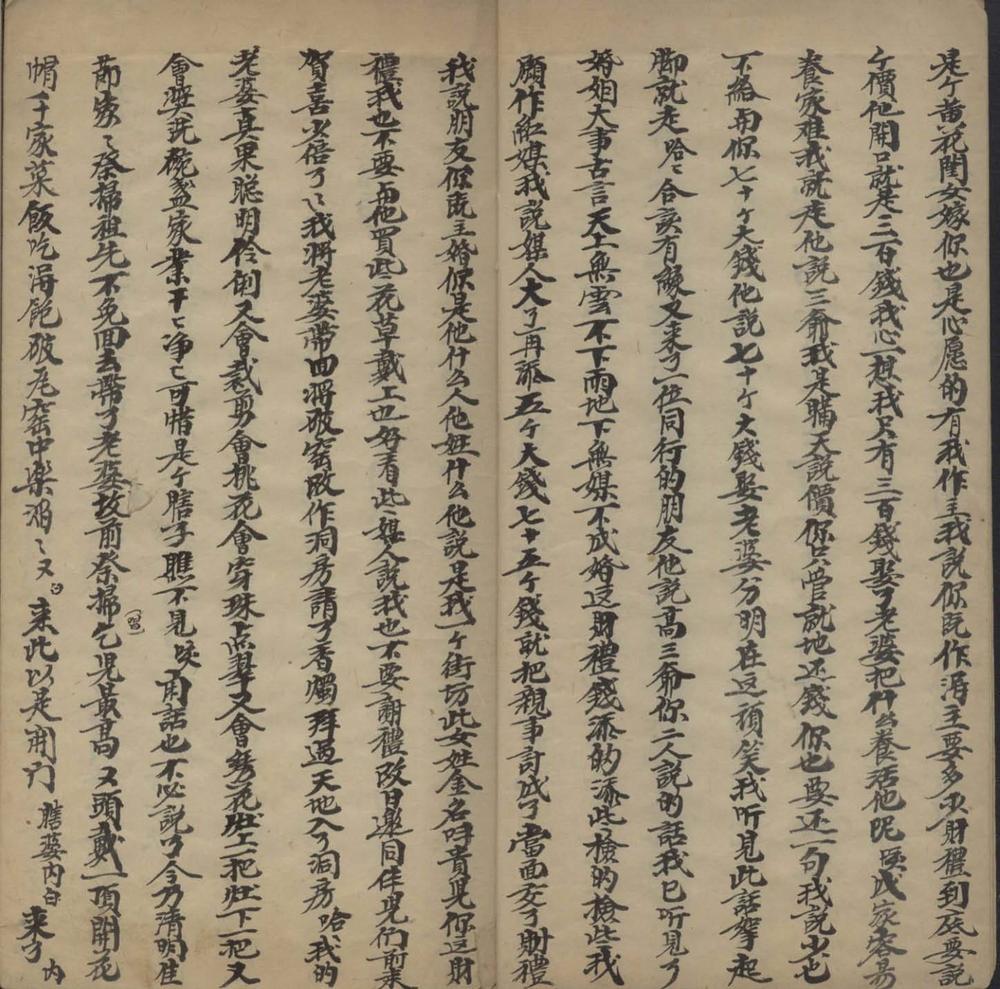 是个黄花閨女嫁你也是心愿的有我作主我說你既作淂主要多少財禮到底要說
个價他開口就是三百錢我心一想我只有三百錢娶了老婆把什么養活他呢唉成家容易
養家难我就走他說三爺我是瞞天說價你只管就地还錢你也要还一句我說少也
不給而你七十个大錢他說七十个大錢娶老婆分明在这頑笑我听見此話拏起
腳就走哈哈合該有緣又来了一位同行的朋友他說高三爺你二人說的話我已听見了
婚姻大事古言天上無雲不下雨地下無媒不成婚这財禮錢添的添些檢的檢些我
願作紅媒我說媒人大了再添五个大錢七十五个錢就把親事討成了當面交了財禮
我說朋友你既主婚你是他什么人他姓什么他說是我一个街坊此女姓金名呌貴児你这財
禮我也不要而他買些花草戴上也好看些媒人說我也不要謝禮改日邀同伴児们前来
賀喜少倍了了我將老婆帶回將破窑改作洞房請了香燭拜过天地入了洞房哈我的
老婆真果聪明伶俐又會裁剪會桃花會穿珠点翠又會綉花肚上一把肚下一把又
會漿說碗盞家業干干净净可惜是个膳子瞧不見唉閑話也不必說了今乃清明佳
節家家祭掃祖先不免回去帶了老婆坟前祭掃乞児最高又頭戴一頂開花
帽千家菜飯吃淂飽破瓦窑中樂滔滔又白来此以是閑门 膳婆内白 来了 内